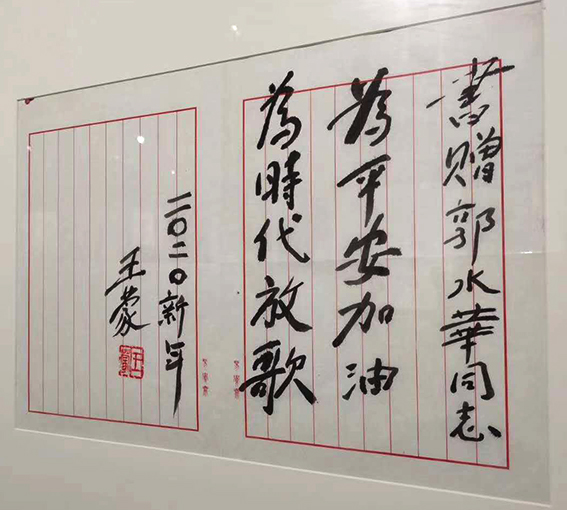 書贈郭水華同志
為平安加油
為時代放歌
二〇二〇新年
王蒙